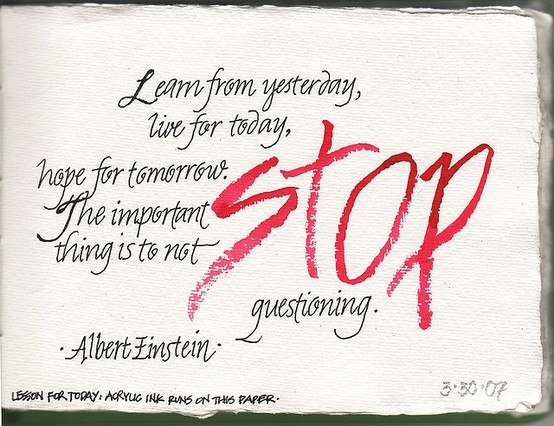 Learn from yesterday,
live for today,
hope for tomorrow.
The important
thing is to not stop
questioning.
· Albert Einstein ·
LESSON FOR TODAY: ACRYLIC INK RUNS ON THIS PAPER.
3·30·07